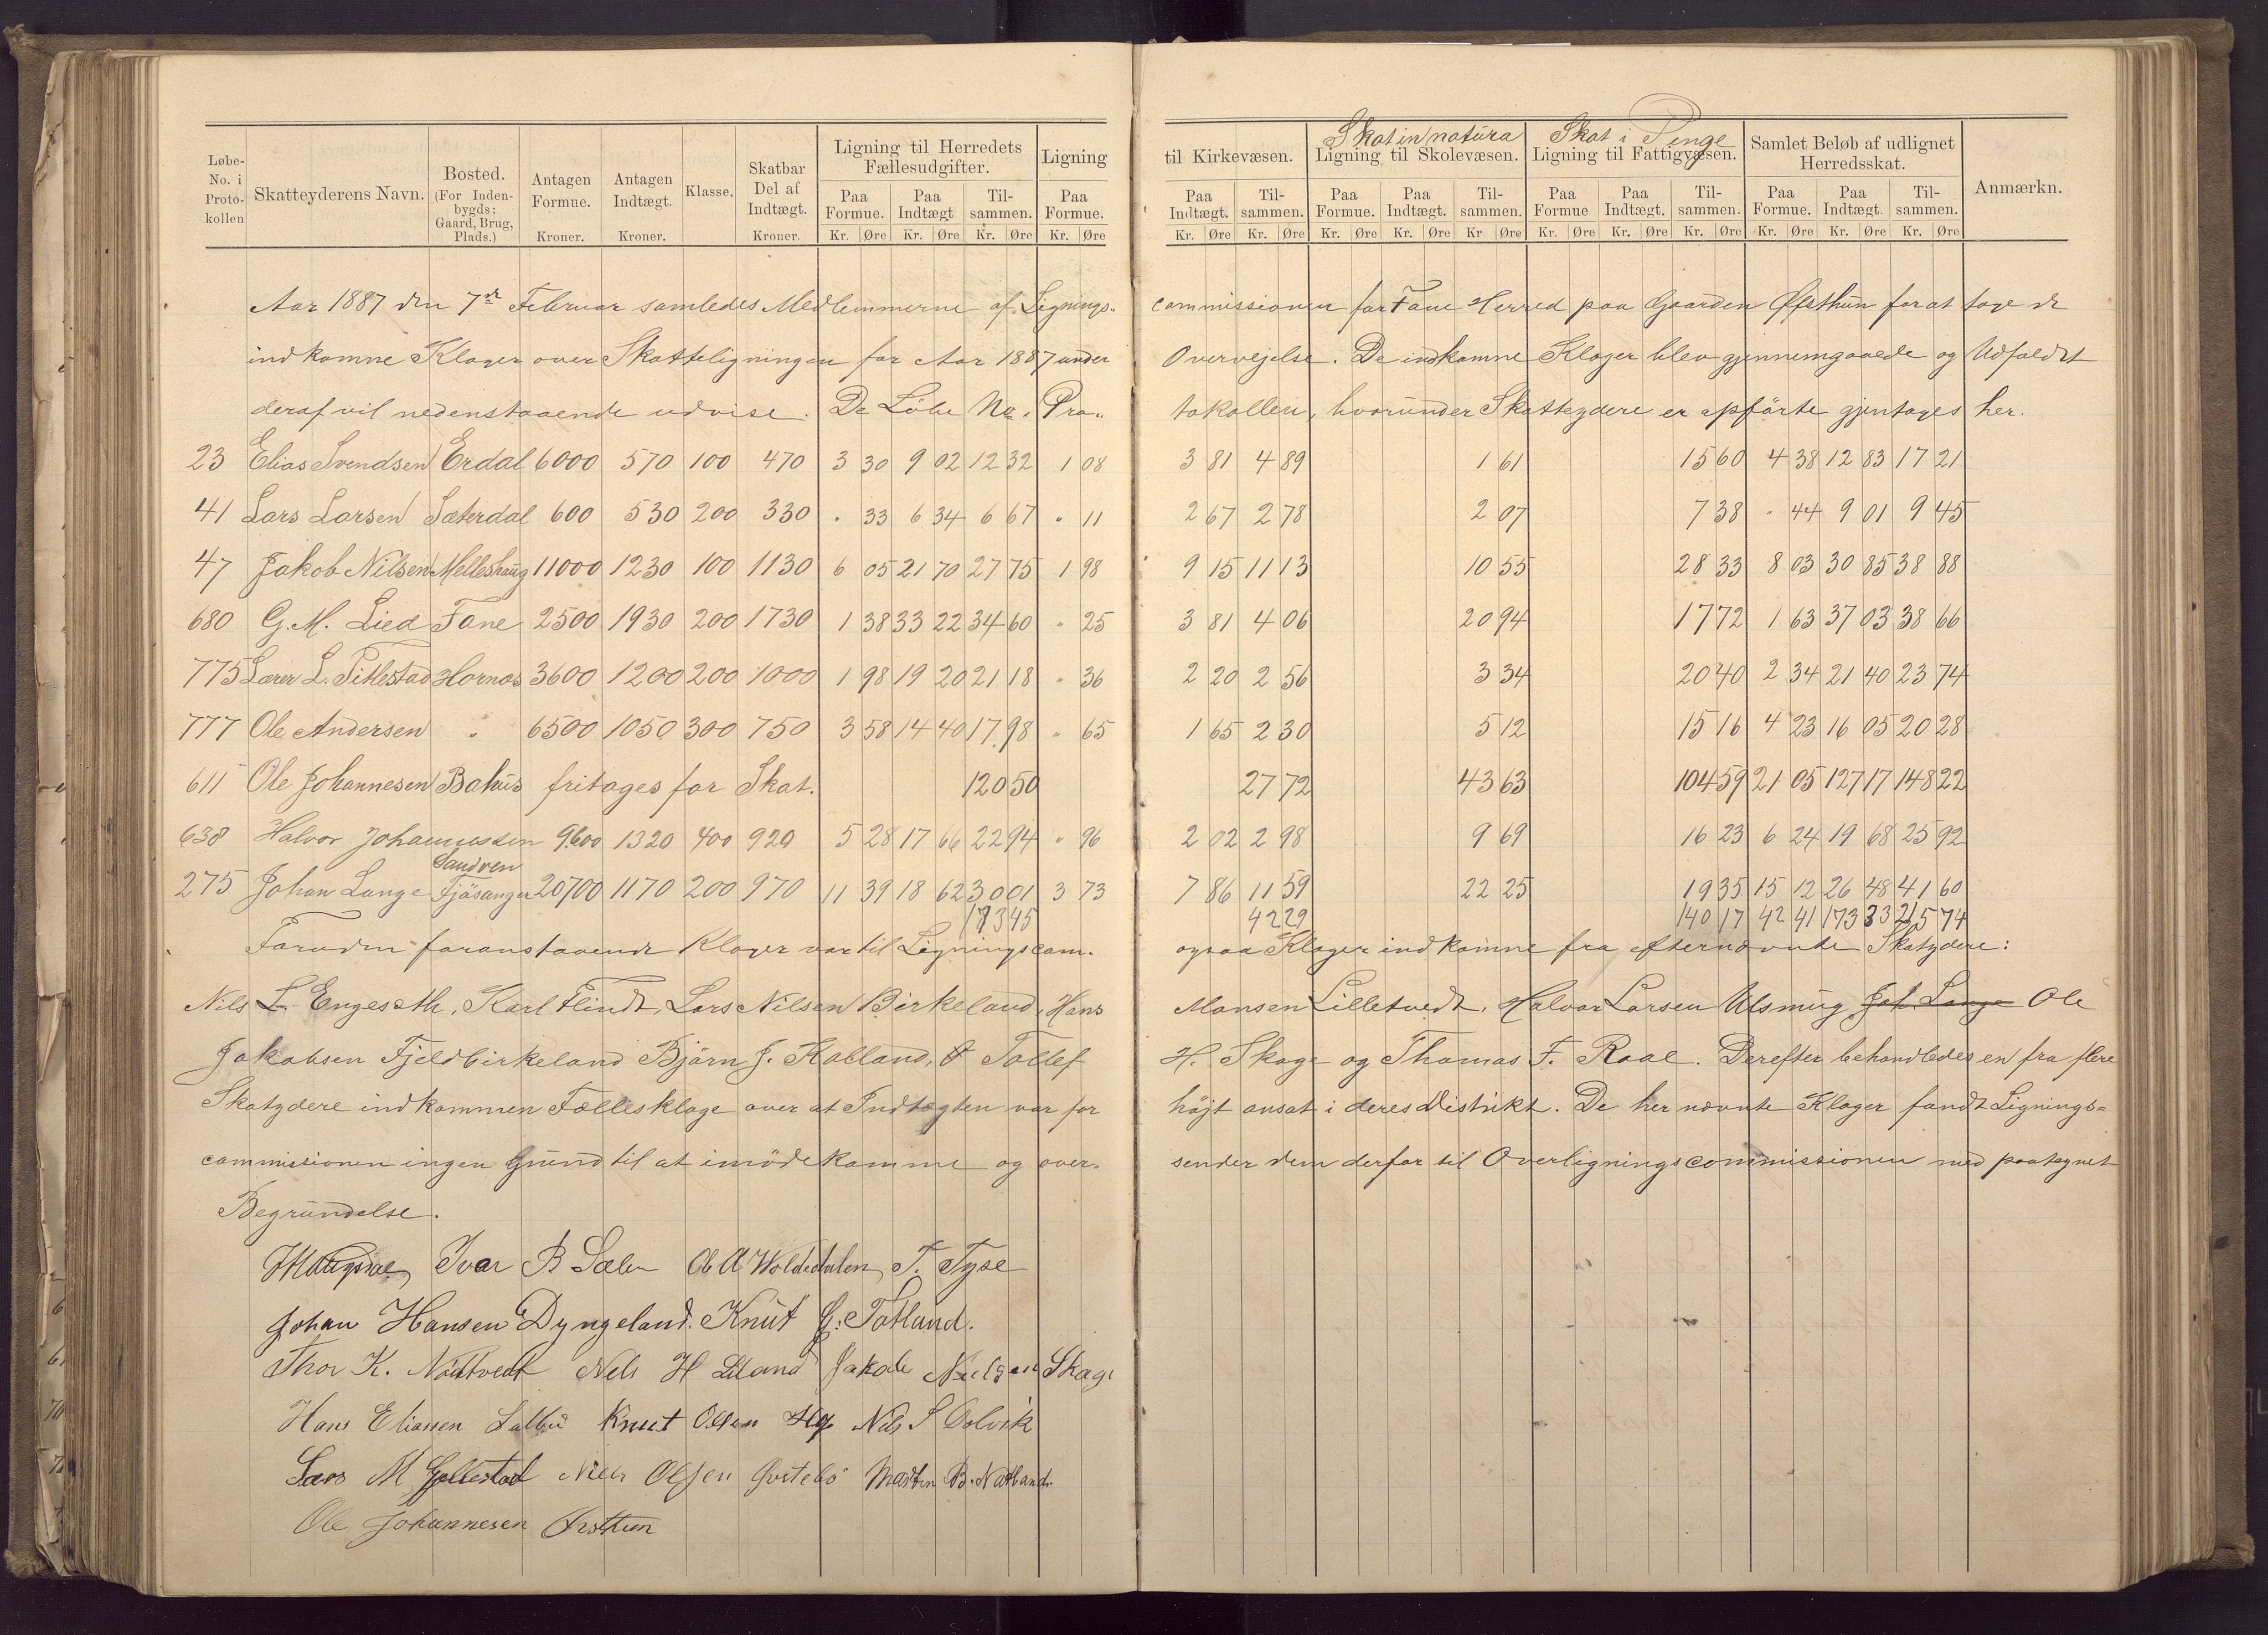 Løbe-No. i Proto-kollen | Skatteyderens Navn. | Bosted. (For Inden-bygds: Gaard, Brug, Plads.) | Antagen Formue. Kroner. | Antagen Indtægt. Kroner. | Klasse. | Skatbar Del af Indtægt. Kroner. | Ligning til Herredets Fællesudgifter. Paa Formue. Kr. Øre | Paa Indtægt Kr. Øre | Til-sammen. Kr. Øre | Ligning Paa Formue. Kr. Øre
til Kirkevæsen. Paa Indtægt. Kr. Øre | Til-sammen. Kr. Øre | Skat in natura Ligning til Skolevæsen. Paa Formue. Kr. Øre | Paa Indtægt. Kr. Øre | Til-sammen. Kr Øre | Skat i Penge Ligning til Fattigvæsen. Paa Formue Kr. Øre | Paa Indtægt. Kr. Øre | Til-sammen. Kr. Øre | Samlet Beløb af udlignet Herredsskat. Paa Formue. Kr. Øre | Paa Indtægt. Kr. Øre | Til-sammen. Kr. Øre | Anmærkn.
Aar 1887 den 7de Februar samledes Medlemmerne af Lignings- commissionen for Fane Herred paa Gaarden Øfsthun for at tage de
indkomne Klager over Skatteligningen for Aar 1887 under Overvejelse. De indkomne Klager blev gjennemgaaede og Udfaldet
deraf vil nedenstaaende udvise. De Löbe No. i Pro- tokollen, hvorunder Skatteydere er opförte gjentages her.
23 Elias Svendsen Erdal 6000 570 100 470 3 30 9 02 12 32 1 08 3 81 4 89 1 61 15 60 4 38 12 83 17 21
41 Lars Larsen Sæterdal 600 530 200 330 " 33 6 34 6 67 " 11 2 67 2 78 2 07 7 38 " 44 9 01 9 45
47 Jakob Nilsen Melleshaug 11000 1230 100 1130 6 05 21 70 27 75 1 98 9 15 11 13 10 55 28 33 8 03 30 85 38 88
680 G. M. Lied Fane 2500 1930 200 1730 1 38 33 22 34 60 " 25 3 81 4 06 20 94 17 72 1 63 37 03 38 66
775 Lærer L. Titlestad Hornæs 3600 1200 200 1000 1 98 19 20 21 18 " 36 2 20 2 56 3 34 20 40 2 34 21 40 23 74
777 Ole Andersen " 6500 1050 300 750 3 58 14 40 17 98 " 65 1 65 2 30 5 12 15 16 4 23 16 05 20 28
611 Ole Johannesen Bahus fritages for Skat. 120 50 27 72 43 63 104 59 21 05 127 17 148 22
638 Halvor Johannessen Sandven 9600 1320 400 920 5 28 17 66 22 94 " 96 2 02 2 98 9 69 16 23 6 24 19 68 25 92
275 Johan Lange Fjösanger 20700 1170 200 970 11 39 18 62 30 01 3 73 7 86 11 59 22 25 19 35 15 12 26 48 41 60
173 45 42 29 140 17 42 41 173 33 215 74
Foruden foranstaaende Klager var til Ligningscom. ogsaa Klager indkomne fra efternævnte Skatydere:
Nils L. Engesæth, Karl Flindt, Lars Nilsen Birkeland, Hans Monsen Lilletvedt, Halvor Larsen Ulsmug Joh. Lange Ole
Jakobsen Fjeldbirkeland Björn J. Kalland, Tollef H. Skage og Thomas F. Raae. Derefter behandledes en fra flere
Skatydere indkommen Fællesklage over at Indtægten var for højt ansat i deres Distrikt. De her nævnte Klager fandt Lignings-
commissionen ingen Grund til at imödekomme og over- sender dem derfor til Overligningscommissionen med paategnet
Begründelse.
Ivar B Sælen Ole A Holdedalen, T. Tyse
Johan Hansen Dyngeland. Knut G. Totland.
Thor K. Nödtvedt Nels H Liland Jakob Nielsen Skage
Hans Eliassen Knut Olsen Nils S Dolvik
Lars M Niels Olsen Martin B. Natland.
Ole Johannesen Øvsthun